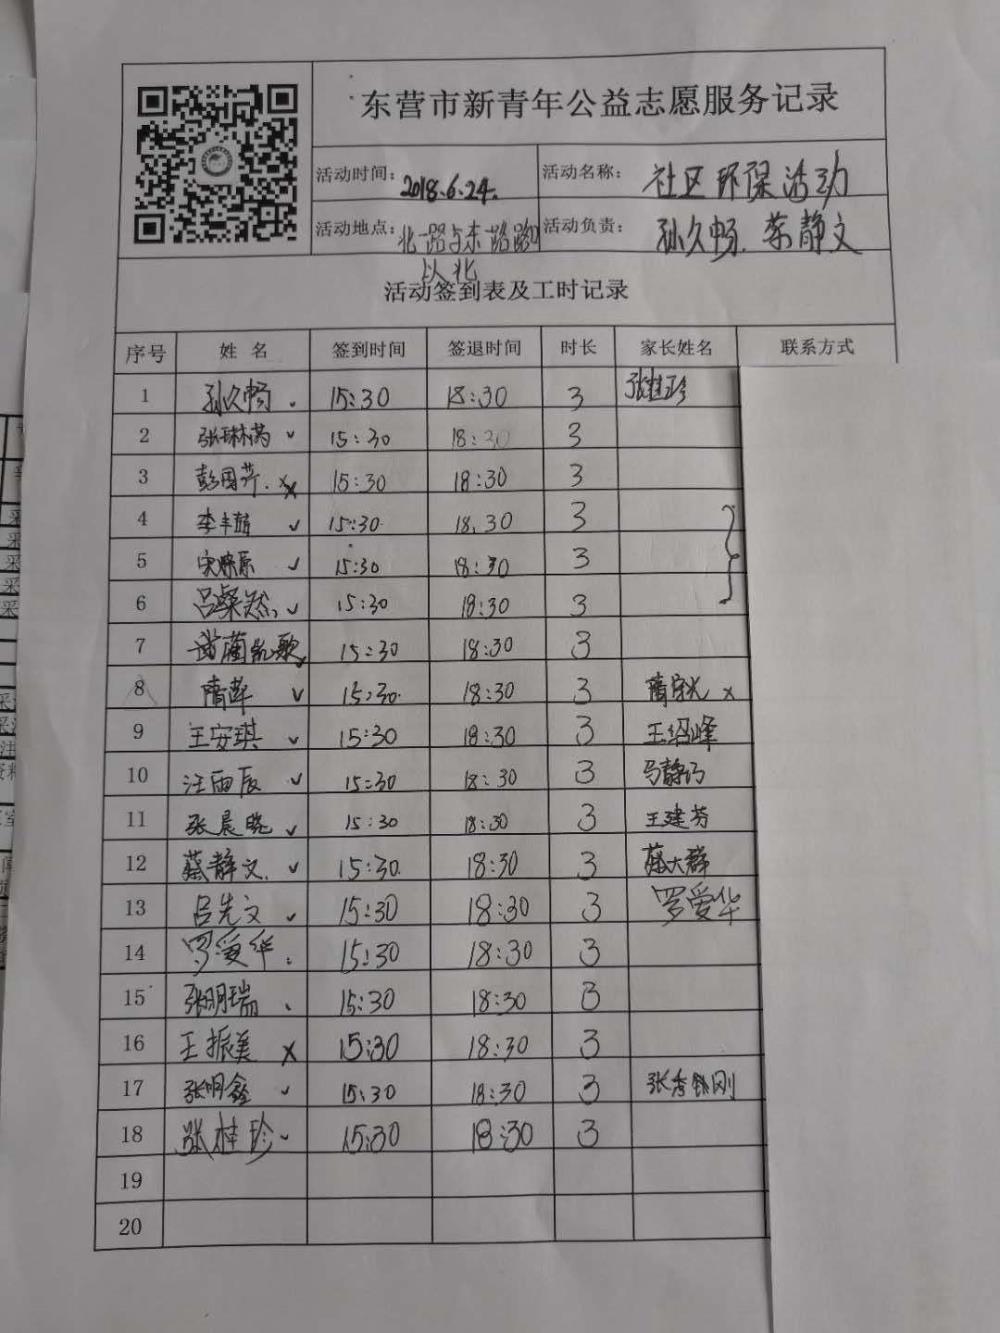 东营市新青年公益志愿服务记录
活动时间： 2018.6.24. 活动名称： 社区环保活动
活动地点： 北一路与东路 以北 活动负责： 孙久畅. 蔡静文
活动签到表及工时记录
序号 姓 名 签到时间 签退时间 时长 家长姓名 联系方式
1 孙久畅 15:30 18:30 3 张桂珍
2 15:30 18:30 3
3 彭国芹 15:30 18:30 3
4 15:30 18.30 3
5 15:30 18:30 3
6 吕粲然 15:30 18:30 3
7 15:30 18:30 3
8 15:30 18:30 3
9 王安琪 15:30 18:30 3 王绍峰
10 汪雨辰 15:30 18:30 3
11 张晨晓 15:30 18:30 3 王建芳
12 蔡静文 15:30 18:30 3 蔡大群
13 吕先文 15:30 18:30 3 罗爱华
14 罗爱华 15:30 18:30 3
15 张明瑞 15:30 18:30 3
16 王振美 15:30 18:30 3
17 张明鑫 15:30 18:30 3
18 张桂珍 15:30 18:30 3
19
20